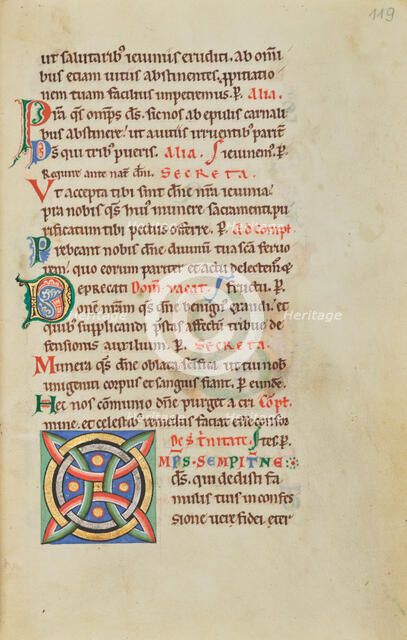 119
ut salutarib; ieiunus eruditi. ab omi
bus etiam uitiis abstinentes. ppitatio
nem tuam facilius impetremus. P. Alia.
Pra qs omps ds. sic nos ab epulis carnali
bus abstinere. ut a uitiis irruentib; parit
Ds qui trib; pueris. Alia. S ieiunem. P.
Require ante nat. dni. SECRETA.
Ut accepta tibi sint dne nra ieiunia.
pra nobis qs hui; munere sacramenti. pu
rificatum tibi pectus offerre. P. Ad Compt
Prebeant nobis dne diuinum tua sca feruo
rem. quo eorum pariter et actu delectem
Deprecati Dom. vacat. fructu. P.
onem nram qs dne benign exaudi. et
quib; supplicandi pstas affectum. tribue de
fensionis auxilium. P. SECRETA.
Munera qs dne oblata scifica. ut tui nob
unigeniti corpus et sanguis fiant. P eunde.
Hec nos comunio dne purget a cri Copt.
mine. et celestib; remediis faciat ee consor
De S Trinitate. stes. P.
MPS. SEMPITNE
ds. qui dedisti fa
mulis tuis in confes
sione uere fidei. eter
Heritage
Heritage
Images
Images